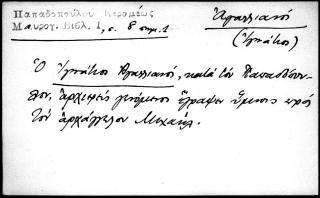 Παπαδοπούλου Κεραμέως
Μαυρογ. Βιβλ. 1, σ. 8 σημ. 1
Ἀβαλλιανό
(Ἰγνάτιο)
Ὁ Ἰγνάτιος Ἀβαλλιανό, κατὰ τὸν Παπαδόπου-
λον, ἀρχιερεὺς γενόμενος ἔγραψεν ὕμνους πρὸς
τὸν ἀρχάγγελον Μιχαήλ.